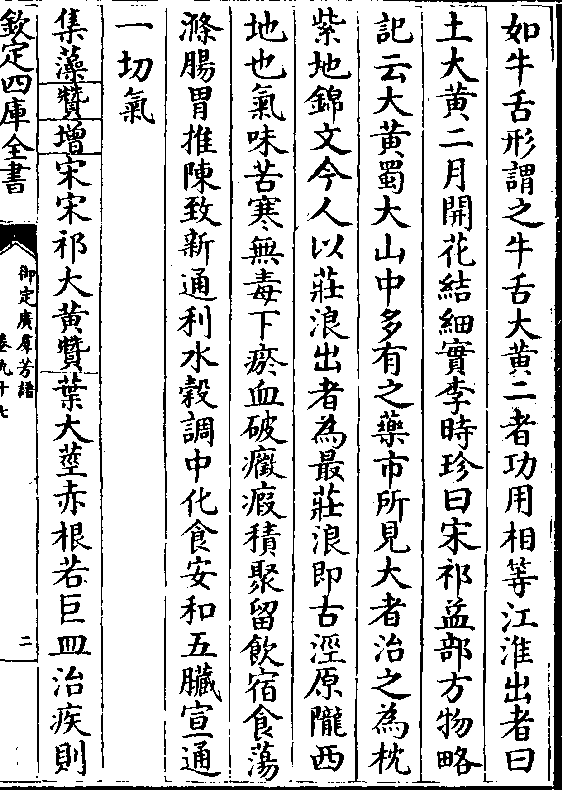 如牛舌形謂之牛舌大黄二者功用相等江淮出者曰
土大黄二月開花結細實李時珍曰宋祁益部方物略
記云大黄蜀大山中多有之藥市所見大者治之為枕
紫地錦文今人以莊浪出者為最莊浪即古涇原隴西
地也氣味苦寒無毒下瘀血破癥瘕積聚留飲宿食蕩
滌腸胃推陳致新通利水榖調中化食安和五臓宣通
一切氣
集藻贊增宋宋祁大黄贊葉大莖赤根若巨皿治疾則
欽定四庫全書
御定廣羣芳譜
卷九十七
二